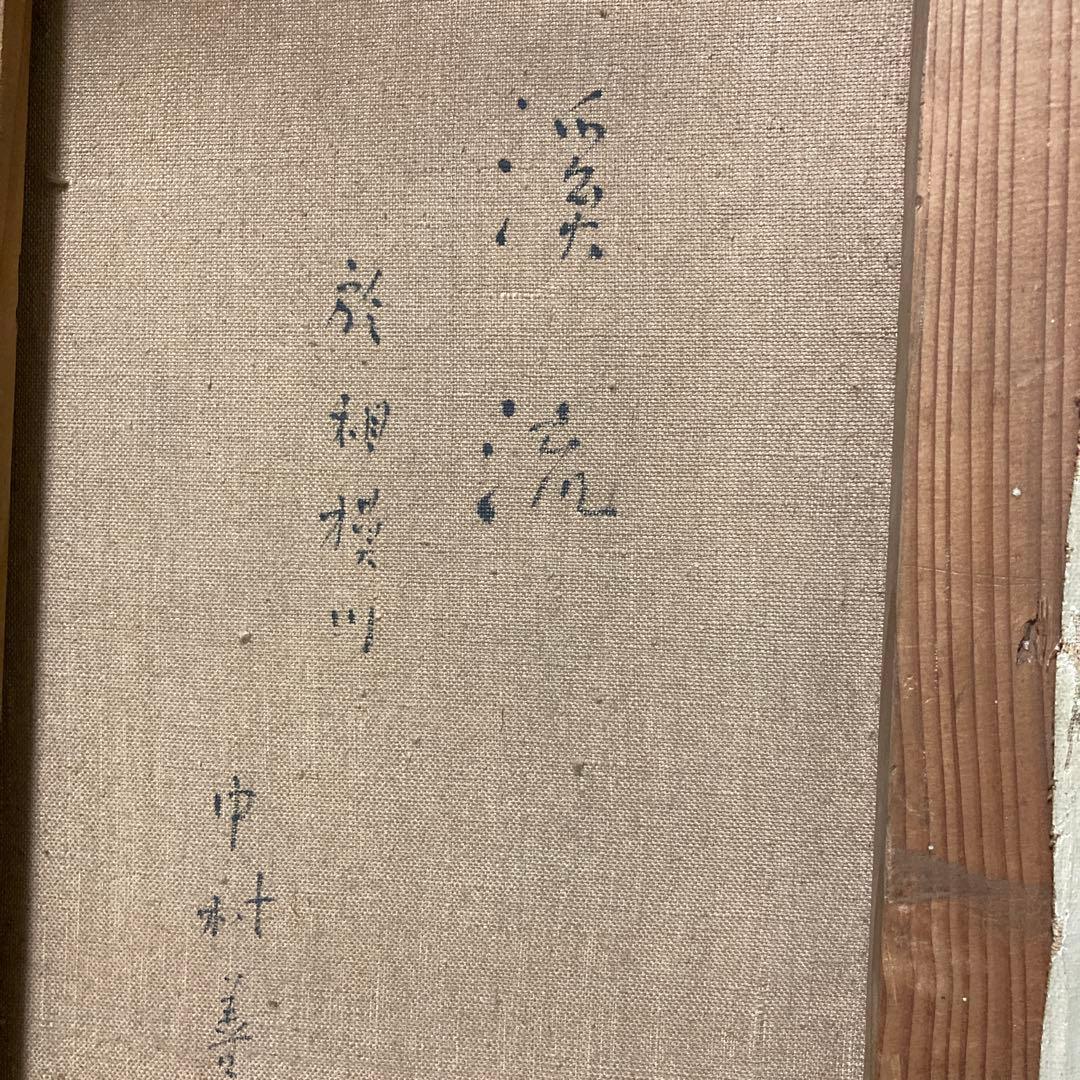 溪流
於相模川
中村善